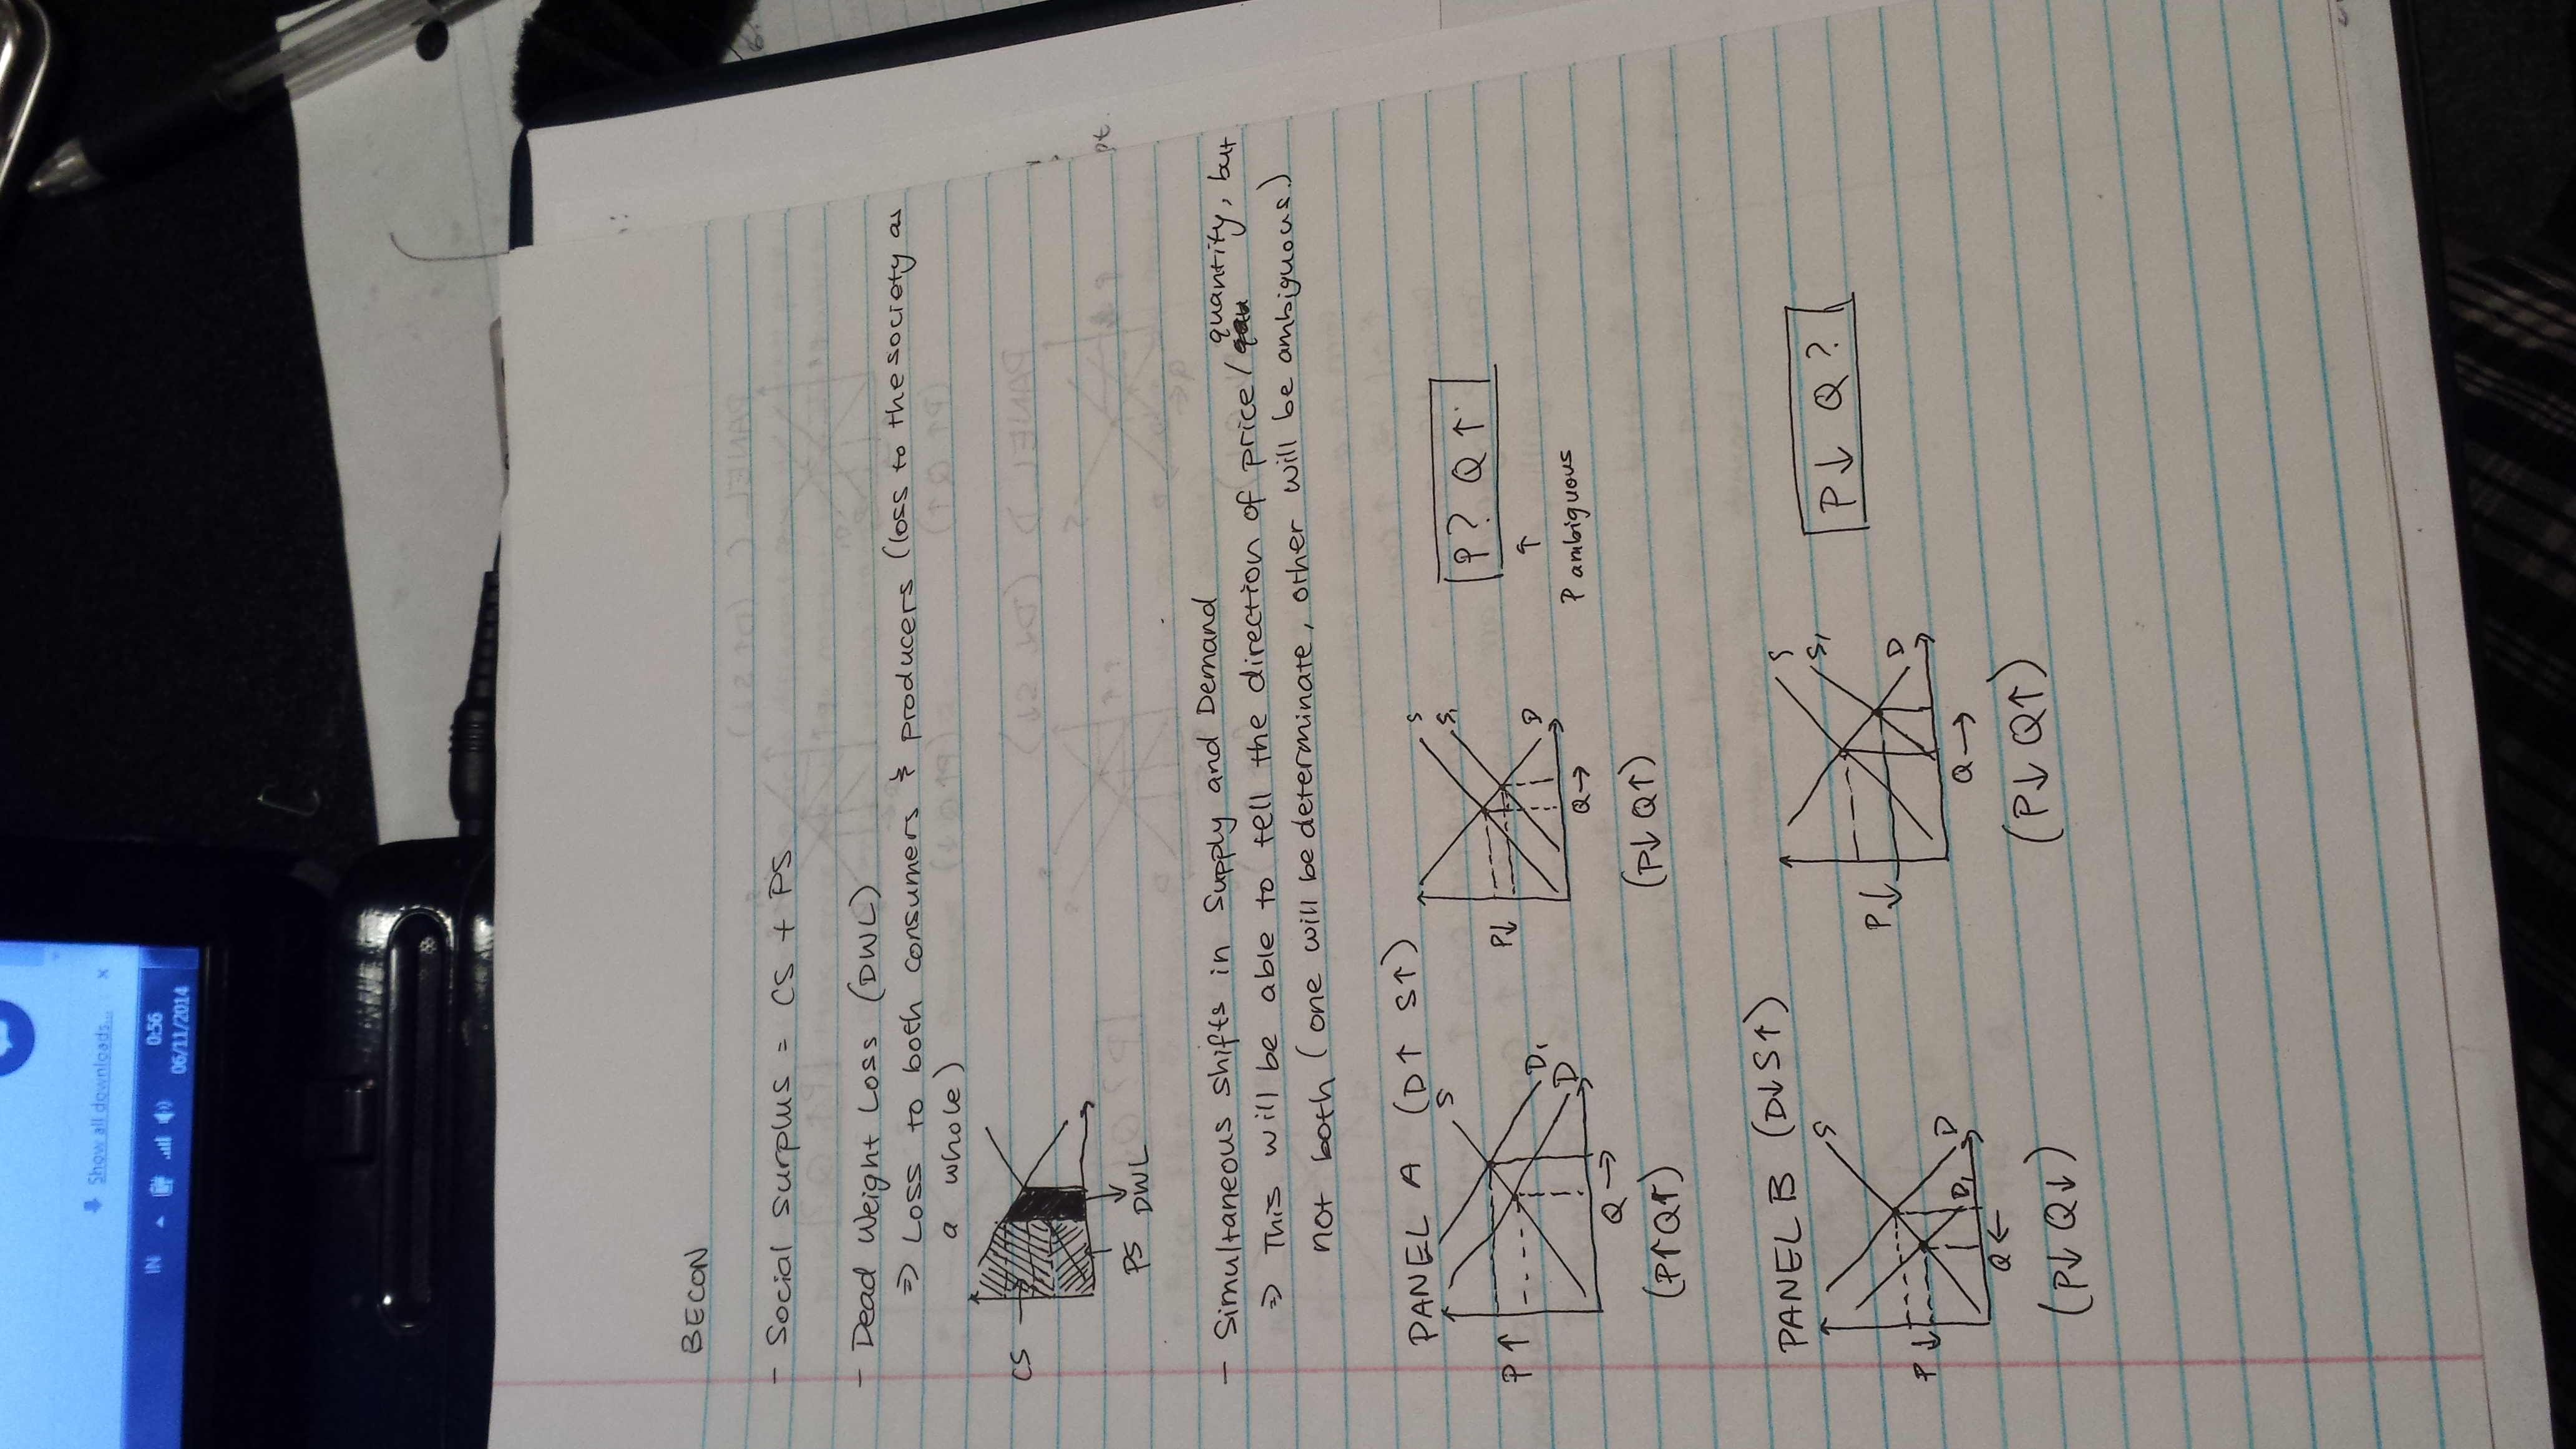 BECON
- Social surplus = CS + PS
- Dead Weight Loss (DWL)
⇒ Loss to both consumers & producers (loss to the society as
a whole)
CS
PS DWL
- Simultaneous shifts in Supply and Demand
⇒ This will be able to tell the direction of price/quantity, but
not both (one will be determinate, other will be ambiguous.)
PANEL A (D↑ S↑)
P↑
S
D₁
D
Q→
(P↑Q↑)
P↓
S
S₁
D
Q→
(P↓Q↑)
P? Q↑
↑
P ambiguous
PANEL B (D↓S↑)
P↓
S
D
D₁
Q←
(P↓Q↓)
P↓
S
S₁
D
Q→
(P↓Q↑)
P↓ Q?
Show all downloads...
IN
0:56
06/11/2014